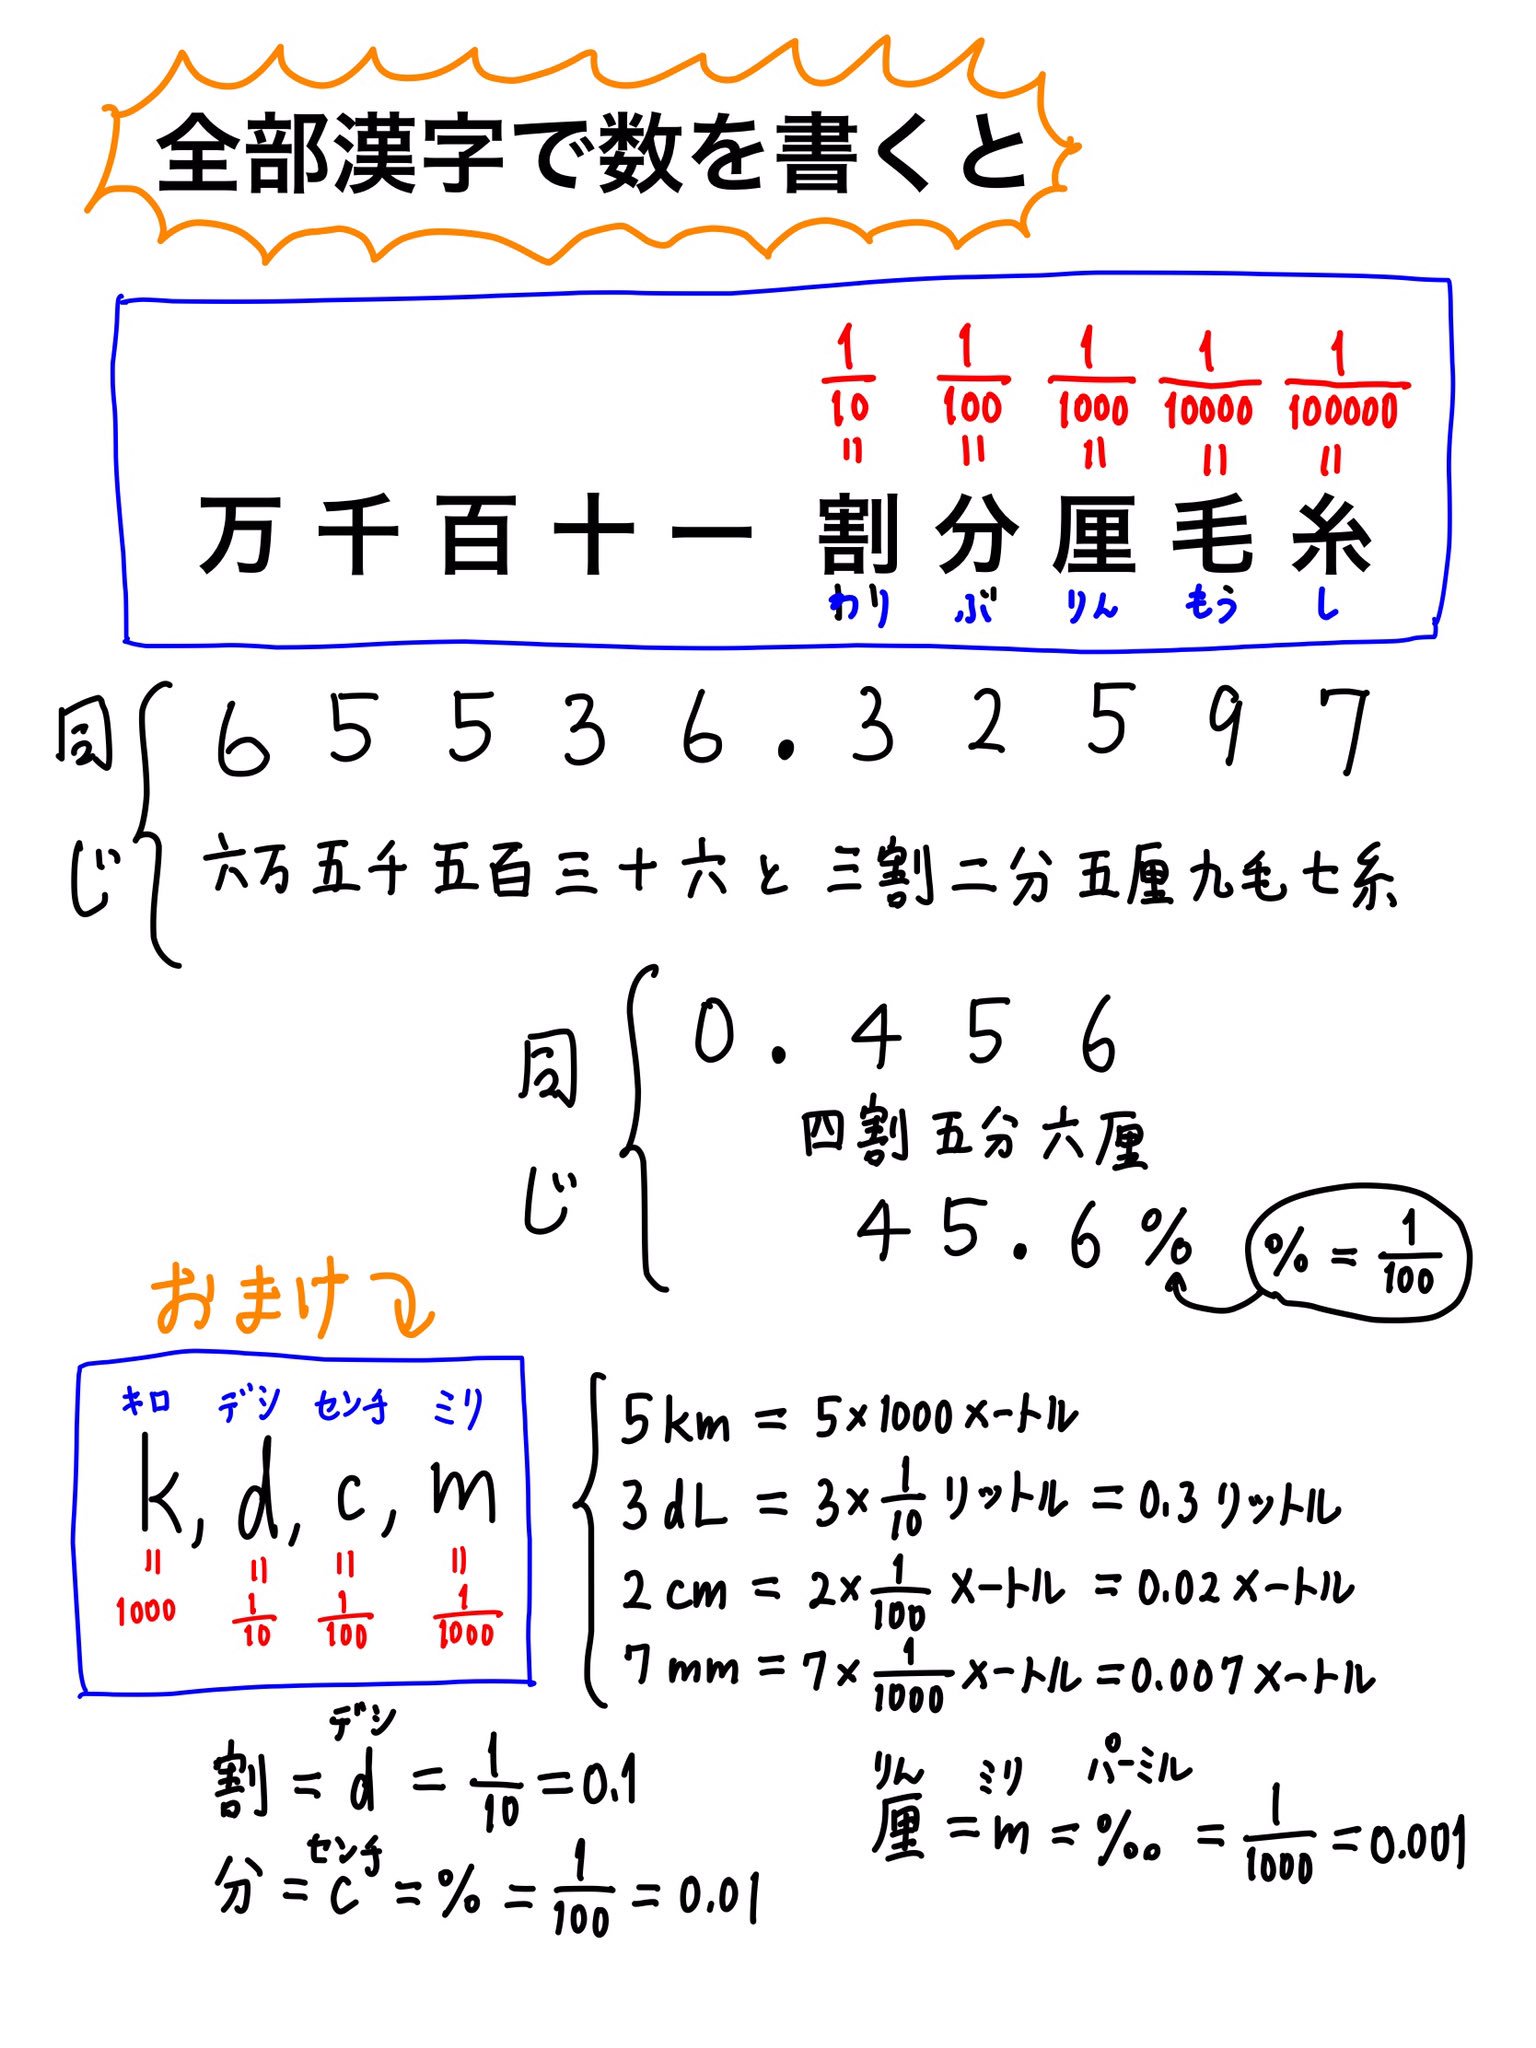 全部漢字で数を書くと
1/10 1/100 1/1000 1/10000 1/100000
= = = = =
万 千 百 十 一 割 分 厘 毛 糸
わり ぶ りん もう し
同じ
6 5 5 3 6 . 3 2 5 9 7
六万五千五百三十六と三割二分五厘九毛七糸
同じ
0.456
四割五分六厘
45.6%
% = 1/100
おまけ
キロ デシ センチ ミリ
k, d, c, m
= = = =
1000 1/10 1/100 1/1000
5km = 5×1000メートル
3dL = 3×1/10リットル = 0.3リットル
2cm = 2×1/100メートル = 0.02メートル
7mm = 7×1/1000メートル = 0.007メートル
デシ
割 = d = 1/10 = 0.1
センチ
分 = c = % = 1/100 = 0.01
りん ミリ パーミル
厘 = m = ‰ = 1/1000 = 0.001